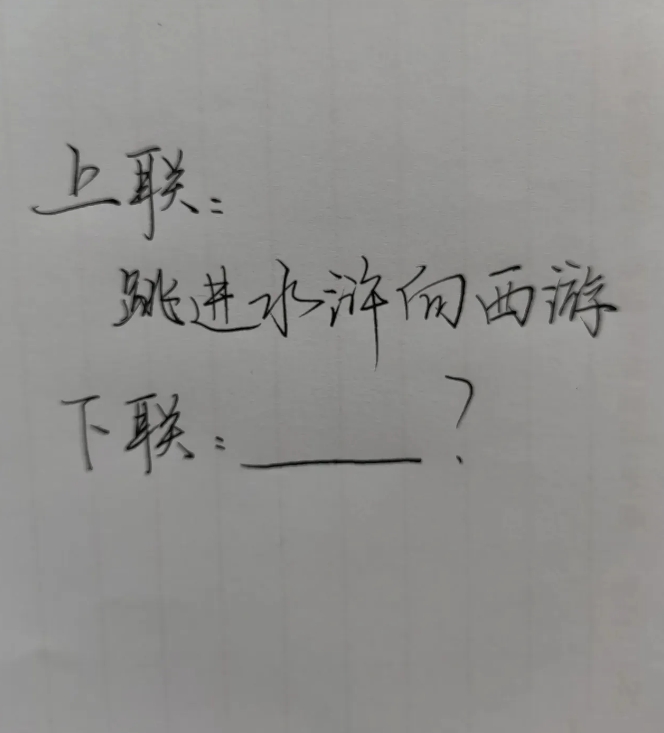 上联：
跳进水浒向西游
下联：______？